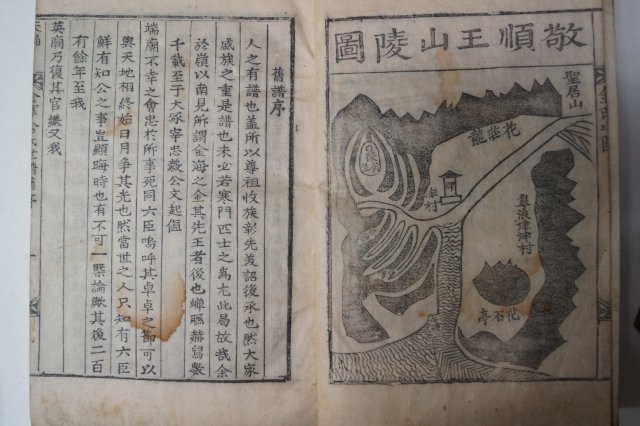 敬順王山陵圖
聖居山
花莊龍
皐村
皐浪津浦村
花石亭
舊譜序
人之有譜也盖所以尊祖收族彰先美詔後承也然大家
感族之重是譜也未必若寒門匹士之爲尤此局故哉余
於嶺以南見所謂金海之金其先王者後也蟬聯赫舃數
千載至于大冢宰忠毅公文起値
端廟不幸之會忠於所事死同六臣嗚呼其卓卓之節可以
與天地相終始日月争其光也然當世之人只知有六臣
鮮有知公之事豈顯晦時也有不可一槩論歟其後二百
有餘年至我
英廟乃復其官繼又我